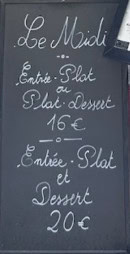 Le Midi
Entrée - Plat
ou
Plat - Dessert
16 €
Entrée - Plat
et
Dessert
20 €